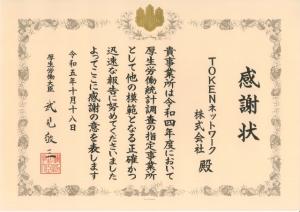 感謝状
TOKENネットワーク
株式会社 殿
貴事業所は令和四年度において
厚生労働統計調査の指定事業所
として他の模範となる正確かつ
迅速な報告に努めてくださいました
よってここに感謝の意を表します
令和五年十月十八日
厚生労働大臣 武見敬三